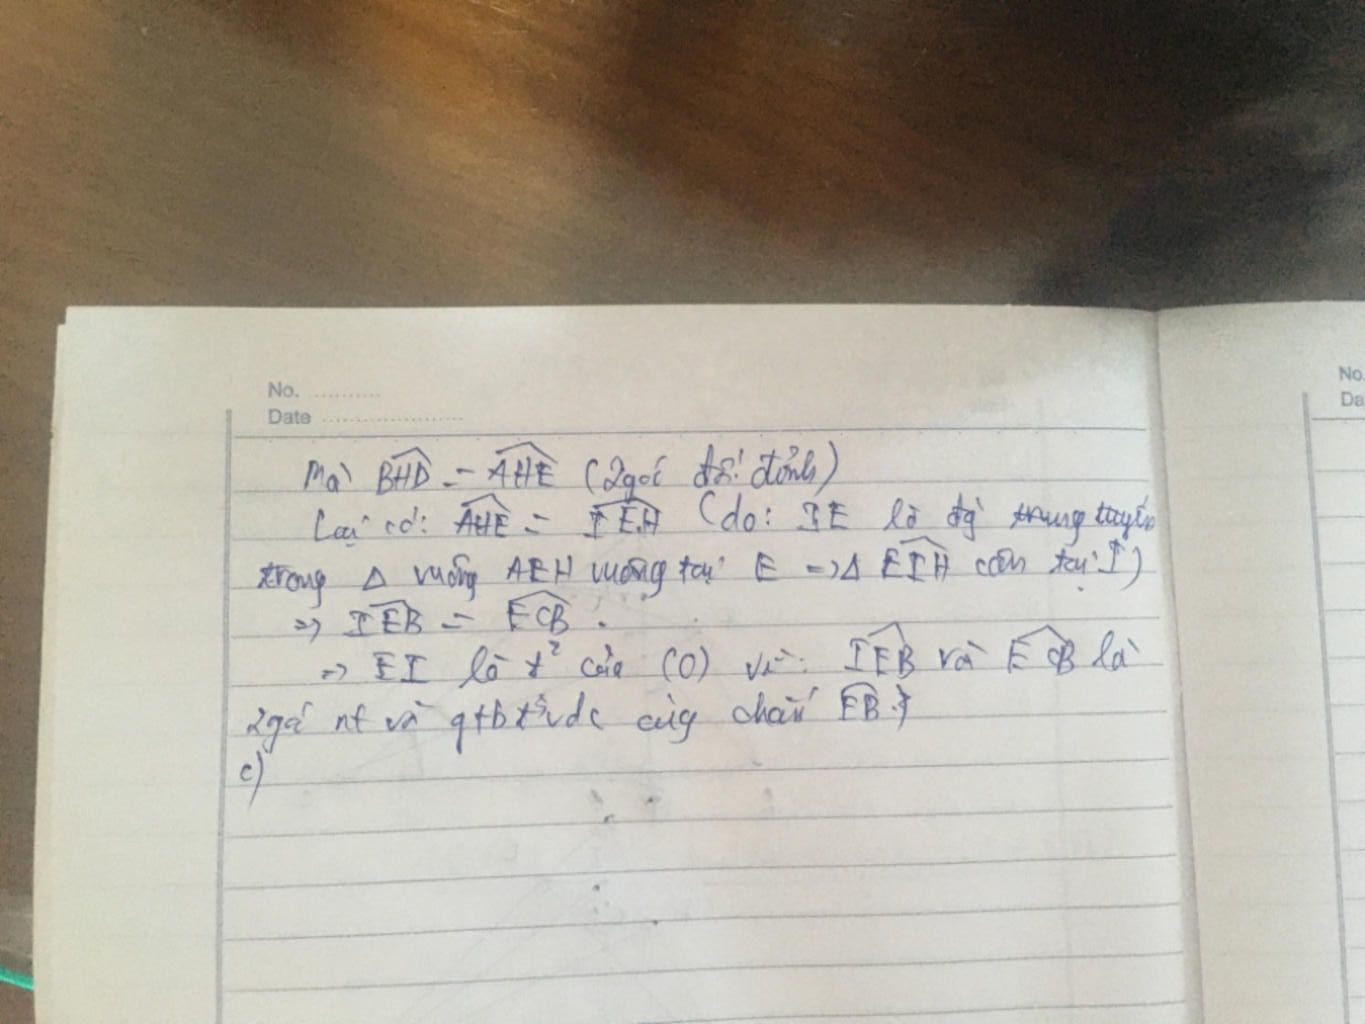 No. ............
Date ........................
No.
Da
Mà BHD = AHE (2 góc đối đỉnh)
Lại có: AHE = IEH (do: IE là đg trung tuyến
trong Δ vuông AEH vuông tại E => Δ EIH cân tại I)
=> IEB = ECB.
=> EI là t² của (O) vì: IEB và ECB là
2 góc nt và gtbt và dc cùng chắn EB.
c)